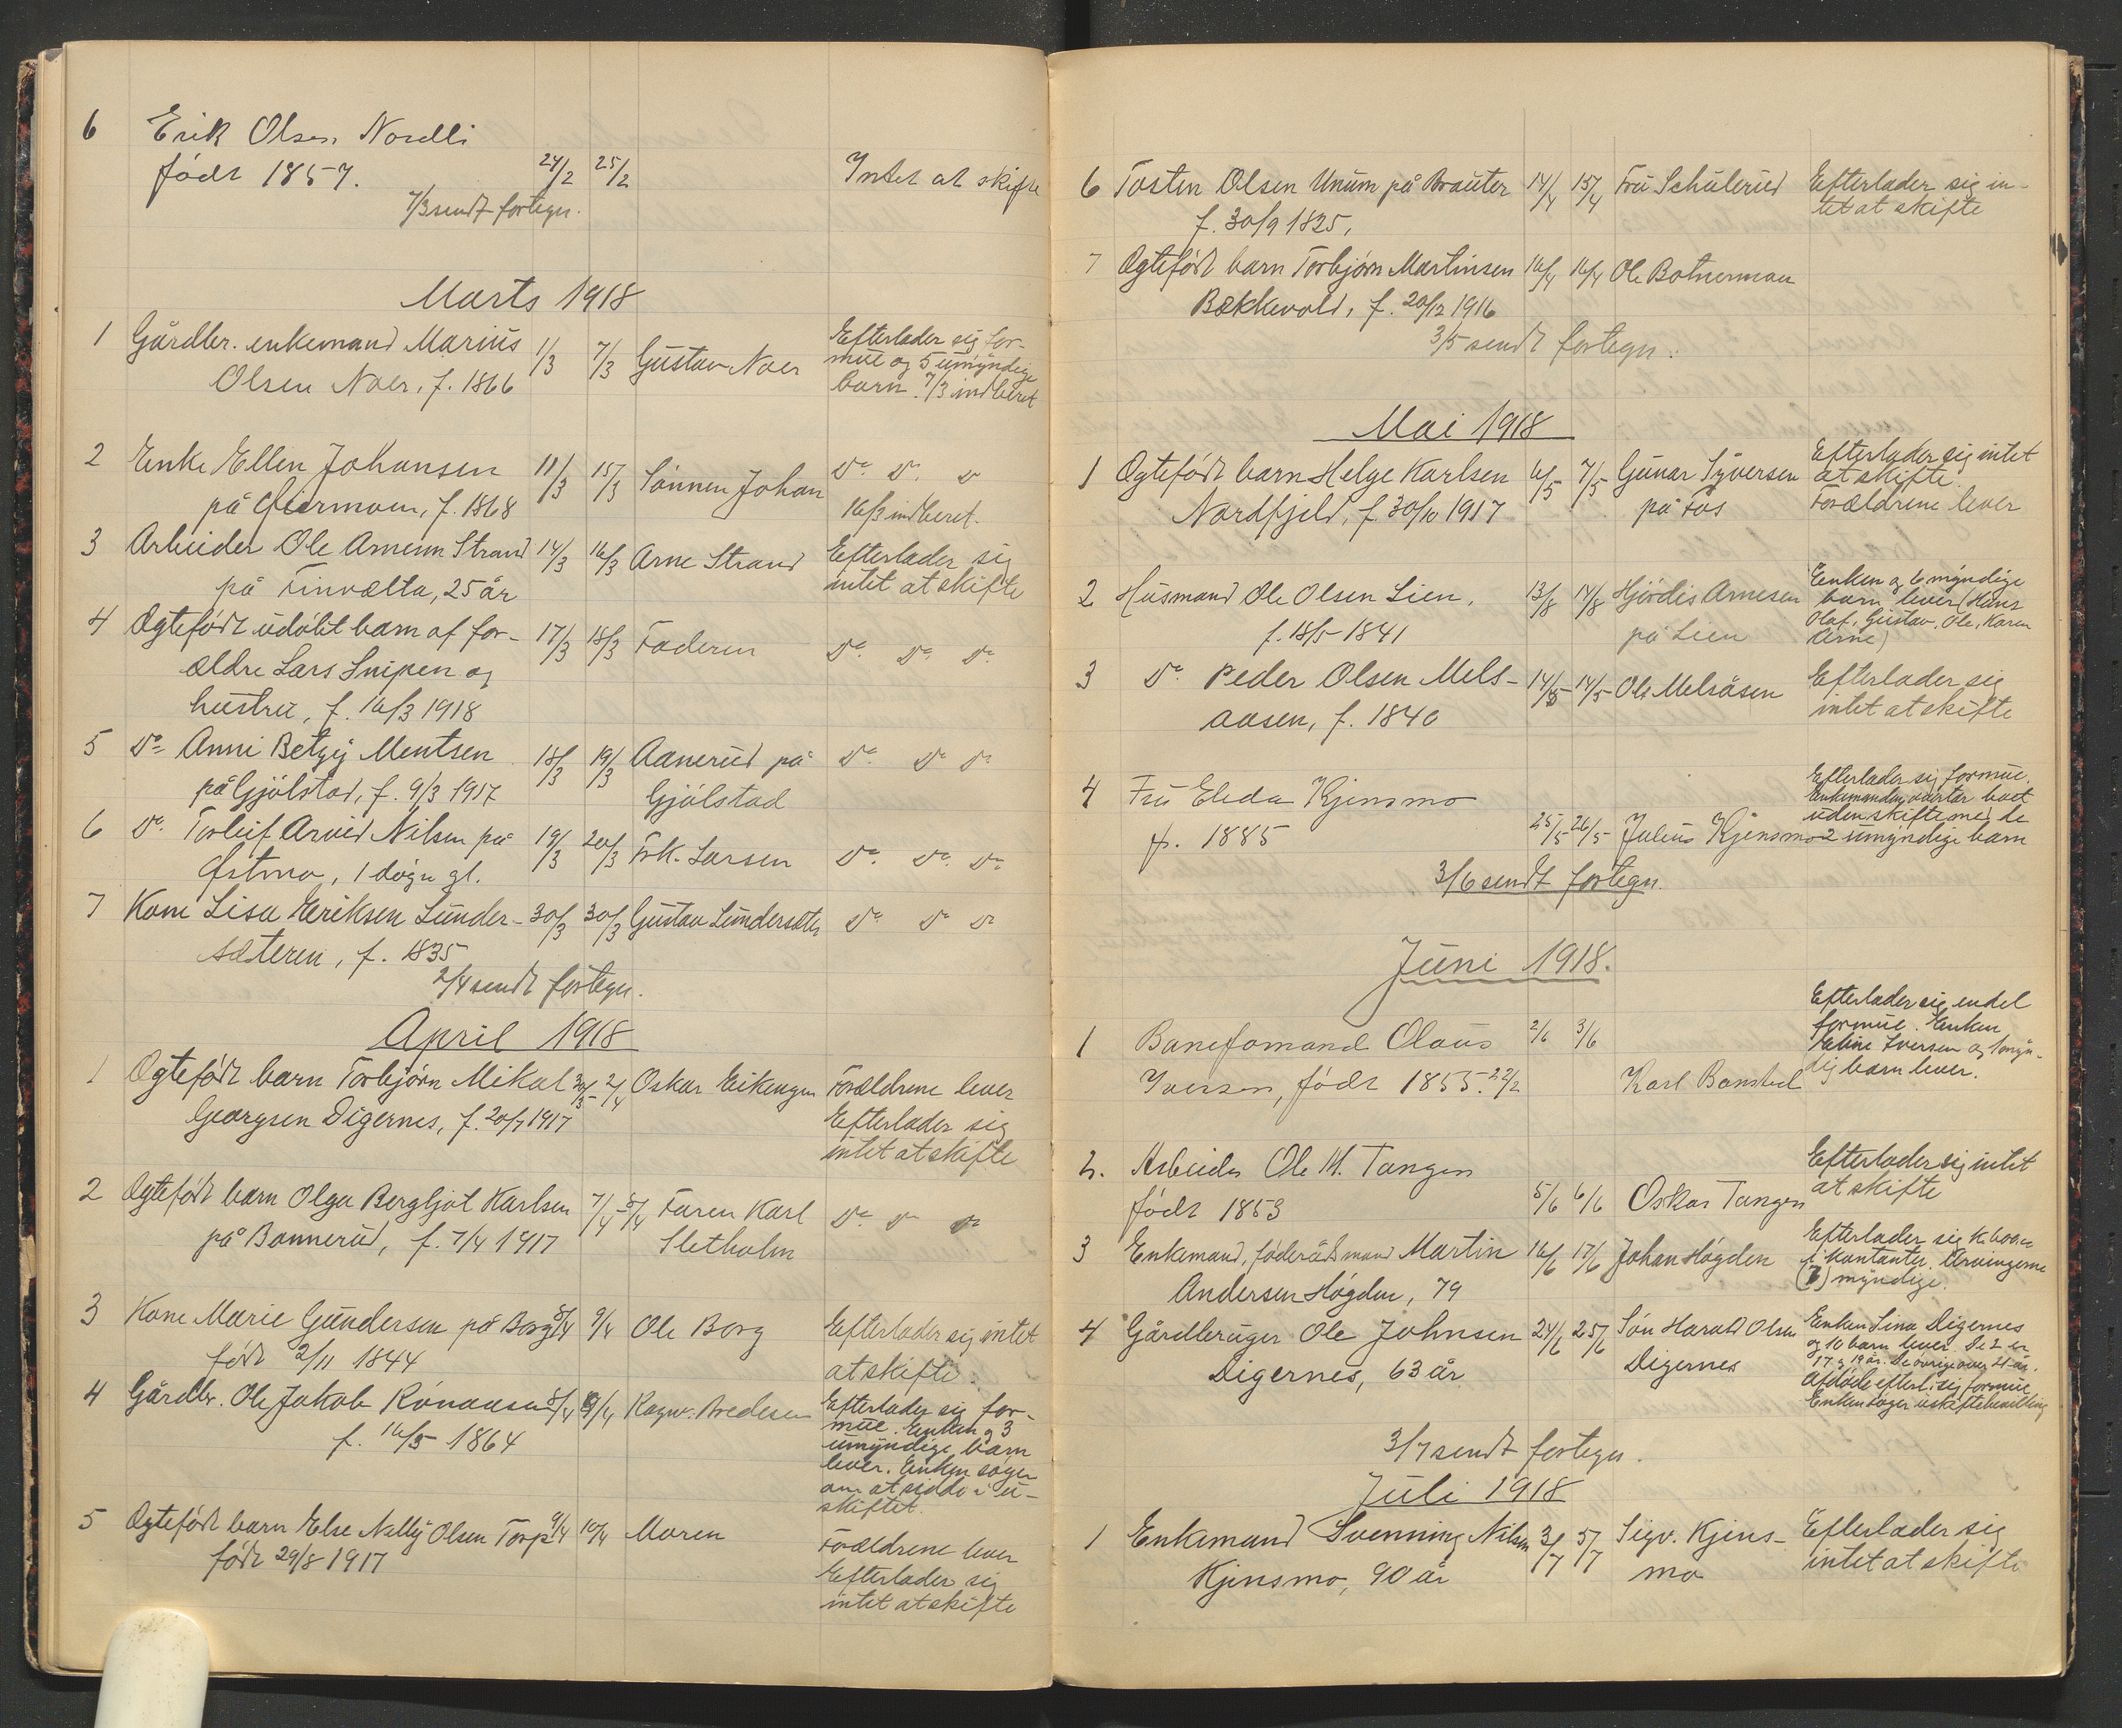 6 Erik Olsen Nordli
født 1857. 24/2 25/2 Intet at skifte
7/3 sendt fortegn.
Marts 1918
1 Gårdbr. enkemand Marius 1/3 7/3 Gustav Noer Efterlader sig for-
Olsen Noer, f. 1866 mue og 5 umyndige
barn. 7/3 indberet
2 Enke Ellen Johansen 11/3 15/3 Sønnen Johan Do. Do. Do
på, f. 1868 16/3 indberet.
3 Arbeider Ole Arnesen Strand 14/3 16/3 Arne Strand Efterlader sig
på Finvælta, 25 år intet at skifte
4 Ægtefødt udøbt barn af for- 17/3 18/3 Faderen Do. Do. Do.
ældre Lars Snipen og
hustru, f. 16/3 1918
5 Do Anni Betzy Mentsen 18/3 19/3 Aanerud på Do. Do Do
på Gjølstad, f. 9/3 1917 Gjølstad
6 Do. Torleif Arvid Nilsen på 19/3 20/3 Frk. Larsen Do. Do. Do
Østmo, 1 døgn gl.
7 Kone Lisa Eriksen Lunder- 30/3 30/3 Gustav Lundersæter Do. Do Do
sæteren, f. 1835
2/4 sendt fortegn.
April 1918
1 Ægtefødt barn Torbjørn Mikal 30/3 2/4 Oskar Eikengen Forældrene lever
Georgsen Digernes, f. 20/7 1917 Efterlader sig
intet at skifte
2 Ægtefødt barn Olga Bergljot Karlsen 7/4 8/4 Faren Karl Do. Do Do
på Bonnerud, f. 7/4 1917 Sletholm
3 Kone Marie Gundersen på Borg 8/4 9/4 Ole Borg Efterlader sig intet
født 2/11 1844 at skifte.
4 Gårdbr. Ole Jakob Rønaasen 8/4 9/4 Ragnv. Bredesen Efterlader sig for-
f. 16/5 1864 mue. Enken og 3
umyndige barn
lever. Enken søger
om at sidde i u-
skiftet.
5 Ægtefødt barn Else Nelly Olsen Torp 9/4 10/4 Moren Forældrene lever
født 29/8 1917 Efterlader sig
intet at skifte
6 Tosten Olsen Unum på Brauter 14/4 15/4 Fru Schulerud Efterlader sig in-
f. 30/9 1825, tet at skifte
7 Ægtefødt barn Torbjørn Martinsen 16/4 16/4 Ole Botnerman
Bækkevold, f. 20/12 1916
3/5 sendt fortegn.
Mai 1918
1 Ægtefødt barn Helge Karlsen 6/5 7/5 Gunar Syversen Efterlader sig intet
Nordfjeld, f. 30/10 1917 på Fos at skifte.
Forældrene lever
2 Husmand Ole Olsen Lien. 13/8 14/8 Hjørdis Arnesen Enken og 6 myndige
f. 18/5 1841 på Lien barn lever (Hans
Olaf, Gustav, Ole, Karen
Arne)
3 Do. Peder Olsen Mels- 14/5 14/5 Ole Melsåsen Efterlader sig
aasen, f. 1840 intet at skifte
4 Fru Elida Kjensmo Efterlader sig formue.
f. 1885 25/5 26/5 Julius Kjensmo Enkemanden overtar boet
uden skifte med de
2 umyndige barn
3/6 sendt fortegn.
Juni 1918.
1 Baneformand Olaus 2/6 3/6 Efterlader sig endel
Iversen, født 1855. 22/2 Karl Banstad formue. Enken
Iversen og 1 myn-
dig barn lever.
2. Arbeider Ole M. Tangen Efterlader sig intet
født 1853 5/6 6/6 Oskar Tangen at skifte
3 Enkemand, føderådsmand Martin 16/6 17/6 Johan Høgden Efterlader sig kr. 600.00
Andersen Høgden, 79 i kontanter. Arvingerne
(7) myndige.
4 Gårdbruger Ole Johnsen 24/6 25/6 Søn Harald Olsen Enken Lina Digernes
Digernes, 63 år Digernes og 10 barn lever. De 2 er
17 og 19 år. De øvrige over 21 år.
Afdøde efterl. sig formue
Enken søger uskiftebevilling
3/7 sendt fortegn.
Juli 1918
1 Enkemand Svenning Nilsen 3/7 5/7 Sigv. Kjens- Efterlader sig
Kjensmo, 90 år mo intet at skifte